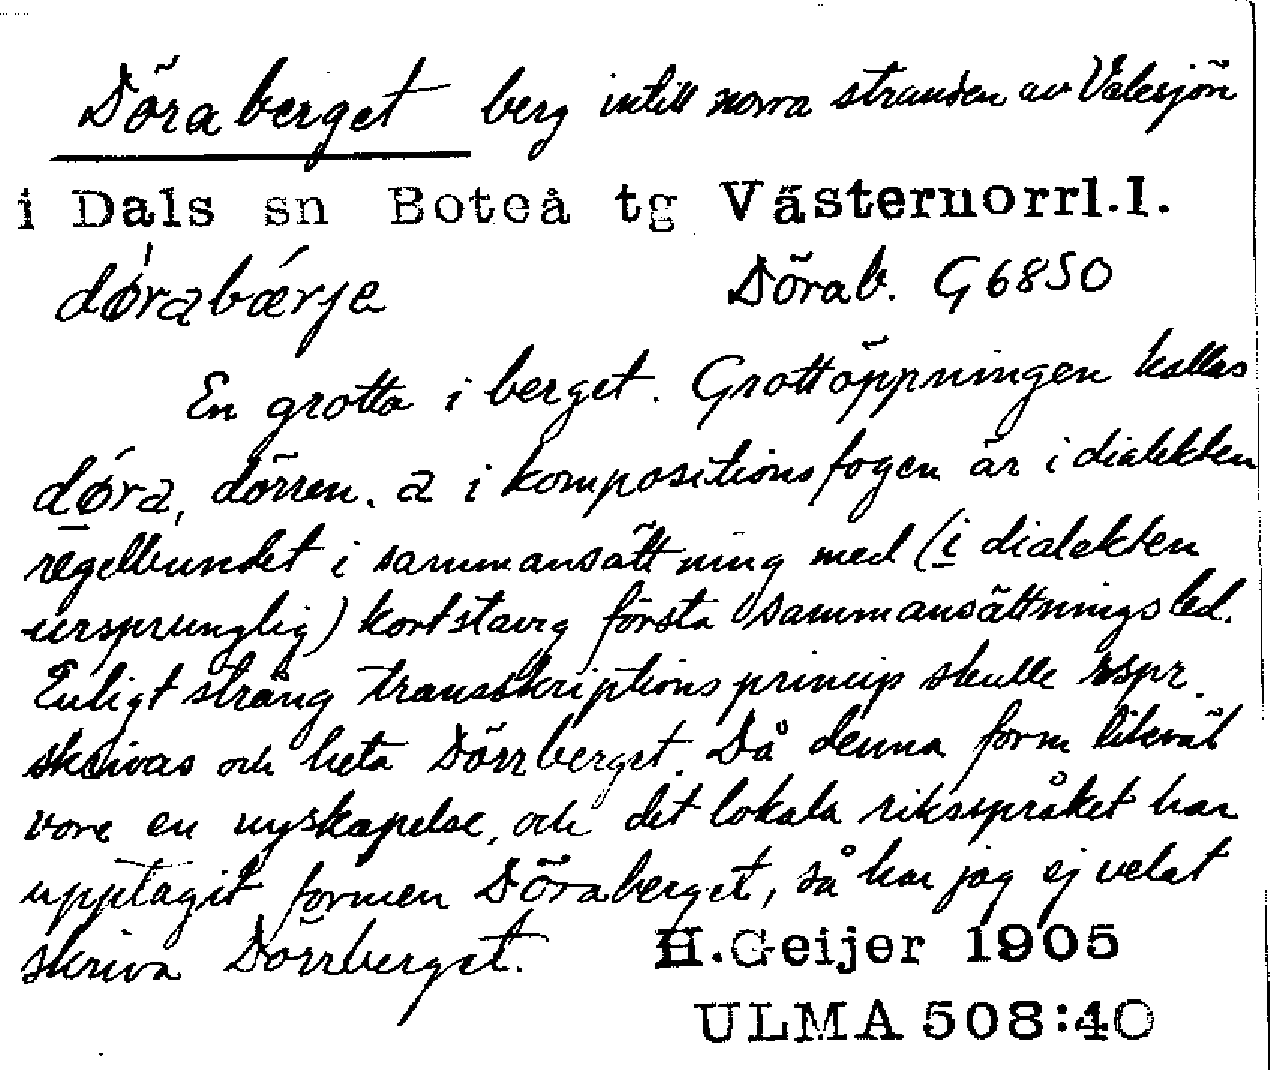 Döraberget berg intill norra stranden av Valasjön
i Dals sn Boteå tg Västernorrl.l.
dørabærje Dörab. G6850
En grotta i berget. Grottöppningen kallas
døra, dörren. a i kompositionsfogen är i dialekten
regelbundet i sammansättning med (i dialekten
ursprunglig) kortstavig första sammansättningsled.
Enligt sträng transskriptionsprincip skulle rspr.
skrivas och heta Dörrberget. Då denna form likväl
vore en nyskapelse, och det lokala riksspråket har
upptagit formen Döraberget, så har jag ej velat
skriva Dörrberget. H.Geijer 1905
ULMA 508:40